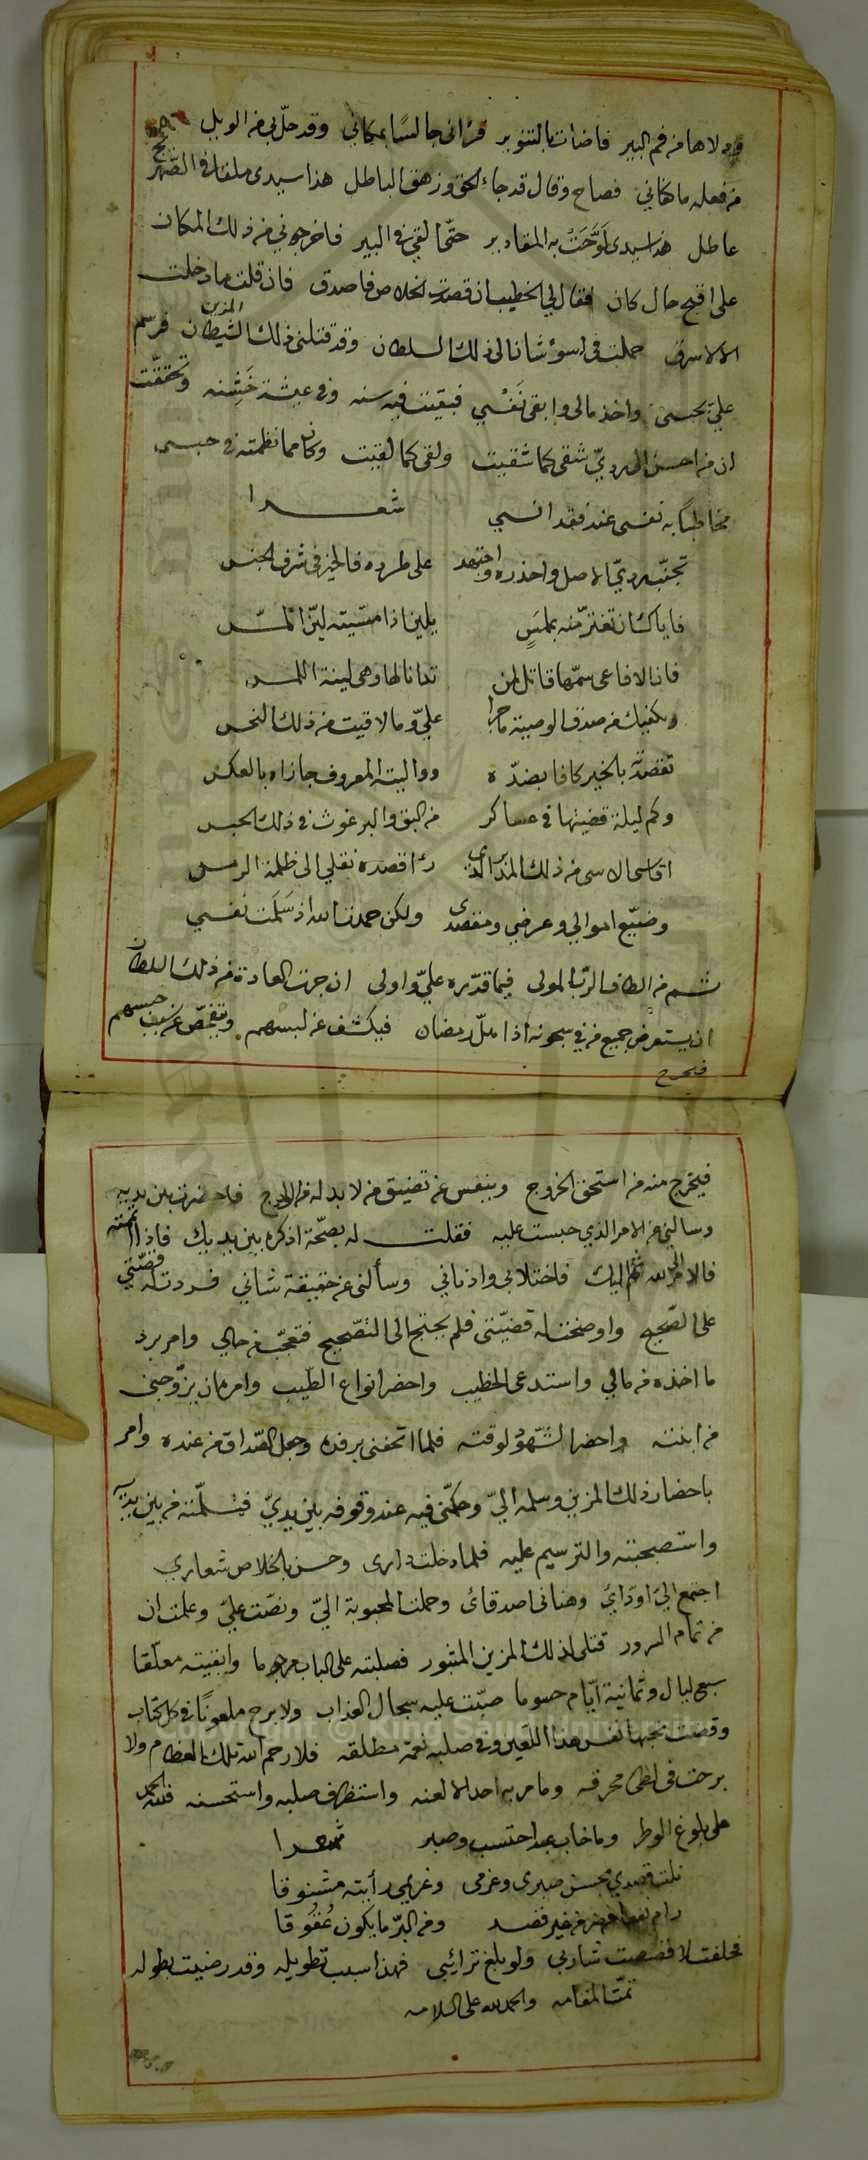 ودلاها من فم البير فاضات بالتنوير فرأنى جالسًا بمكاني وقد حلّ بي من الويل
من فعله ما كفاني فصاح وقال قد جاء الحق وزهق الباطل هذا سيدى ملقا في
عاطل هذا سيدى لوّحَتْ به المقادير حتّى القي في البير فاخرجوني من ذلك المكان
على اقبح حال كان فقال لي الخطيب ان قصدت الخلاص فاصدق فان قلت ما دخلت
الا لاسرق حملت فى اسوء شانا الى ذلك السلطان وقد قتلنى ذلك الشيطان المزين فرسم
عليّ بحبسى واخذ مالى وابقى نَفْسي فبقيت فيه سنه وفي عيشة خَشِنه وتحققت
ان من احسن الى رديّ شقى كما شقيت ولقى كما لقيت وكان مما نظمته في حبسى
مخاطبًا به نفسى عند فقد انسي شعرا
تجنّب رديّ الاصل واحذره واجتهد على طرده فالخير في شرف الجنس
فاياك ان تغترّ منه بملمَسٍ يلين اذا مسّيته ليّن المسّ
فان الافاعى سمّها قاتل لمن تدانا لها وهى لينة اللمس
ويكفيك من صدق الوصية ما جرا عليّ وما لاقيت من ذلك النحس
تقصدته بالخير كافا بضدّه وواليته المعروف جازاه بالعكس
وكم ليلة قضيتها في عساكر من البق والبرغوث في ذلك الحبس
اقاسى الاسى من ذلك المدبر الذى رأا قصده نقلي الى ظلمة الرمس
وضيّع اموالي وعرضي ومقصدى ولكن حمدت الله اذ سَلَمت نفسي
ثم من الطاف الرّب المولى فيما قدّره عليّ واولى ان جرت العادة من ذلك السلطان
ان يستعرض جميع من في سجونه اذا هلّ رمضان فيكشف عن لبسهم ويتفحّص عن سبب حبسهم
فيخرج
فيخرج منه من استحق الخروج وينفس عن تضييق من لا بد له من فاحضرت بين يديه
وسالنى عن الامر الذي حبست عليه فقلت له بصحّة اذكره بين يديك فاذا
فالامر الى الله ثم اليك فاختلا بى وادناني وسألنى عن حقيقة شاني فسردت له قصّتي
على الصّحيح واوضحت له قضيّتى فلم يحتج الى التّصحيح فتعجّب من حالي وامر برد
ما اخذه من مالي واستدعى الخطيب واحضر انواع الطّيب وامره ان يزّوجنى
من ابنته واحضر الشّهود لوقته فلما اتحفنى برفده وجعل الصّداق من عنده وامر
باحضار ذلك المزين وسلمه اليّ وحكّمنى فيه عند وقوفه بين يديّ فتسلّمته من بين يديه
واستصحبته والترسيم عليه فلما دخلت دارى وحسن بالخلاص شعاري
اجتمع اليّ اودّائي وهنانى اصدقائ وحملت المحبوبة اليّ ونصّت عليّ وعلمت ان
من تمام السرور قتلى لذلك المزين المثبور فصلبته على الباب وابقيته معلّقا
سبع ليال وثمانية ايّام حسوما صبّت عليه سجال العذاب ولا برح ملعونًا في كل كتاب
وقضت نحبها نفس هذا اللعين وفي صلبه نعمة مطلقه فلا رحم الله تلك العظام ولا
برحت فى لظى محرقه وما مر به احد الا لعنه واستظرف صلبه واستحسنه فلله الحمد
على بلوغ الوطر وما خاب عبد احتسب وصبر شعرا
نلت قصدي بحسن صبرى وعزمى وغريمي رأيته مشنوقا
رام من غير قصد ومن البرّ ما يكون عُقوُقا
فحلفت لا قصصت شاربي ولو بلغ ترائبي فهذا سبب تطويله وقد رضيت بطوله
تمّت المقامه والحمد لله على السلامه
Copyright © King Saud University